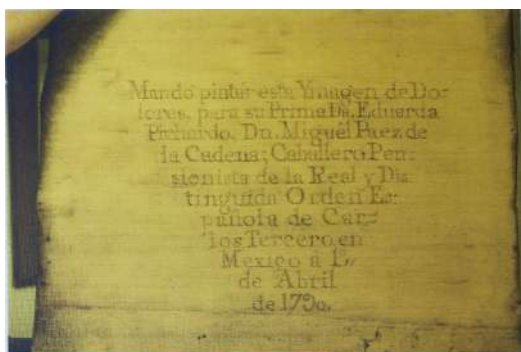 Mando pintar esta Ymagen de Do=
lores, para su Prima Da. Eduarda
Pichardo, Dn. Miguél Paez de
la Cadena; Caballero Pen=
sionista de la Real y Dis=
tinguida Orden Es=
pañola de Car=
los Tercero en
Mexico a 1º,,
de Abril
de 1790.